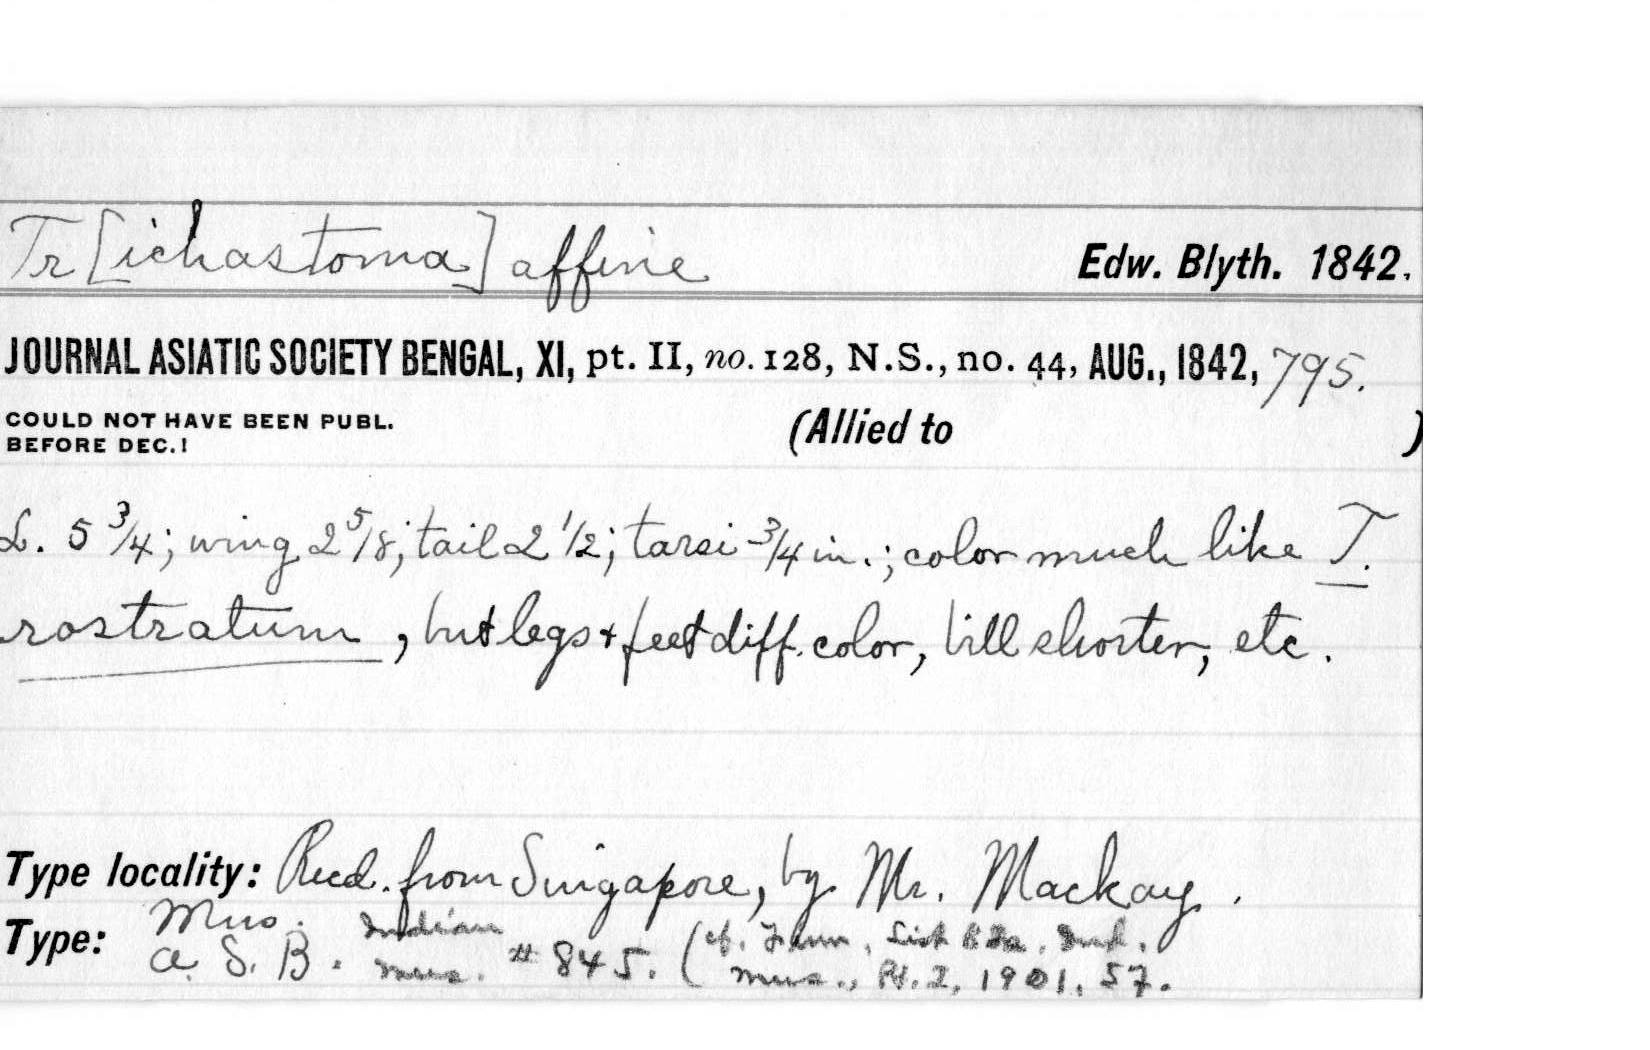 Tr[ichastoma] affine Edw. Blyth. 1842.
JOURNAL ASIATIC SOCIETY BENGAL, XI, pt. II, no. 128, N.S., no. 44, AUG., 1842, 795.
COULD NOT HAVE BEEN PUBL.
BEFORE DEC.! (Allied to )
L. 5 3/4; wing 2 5/8; tail 2 1/2; tarsi 3/4 in.; color much like T.
rostratum, but legs + feet diff. color, bill shorter, etc.
Type locality: Recd. from Singapore, by Mr. Mackay.
Type: Mus. A. S. B. Indian Mus. # 845. (cf. Finn, List Bds. Ind. Mus., Pt. 2, 1901, 57.